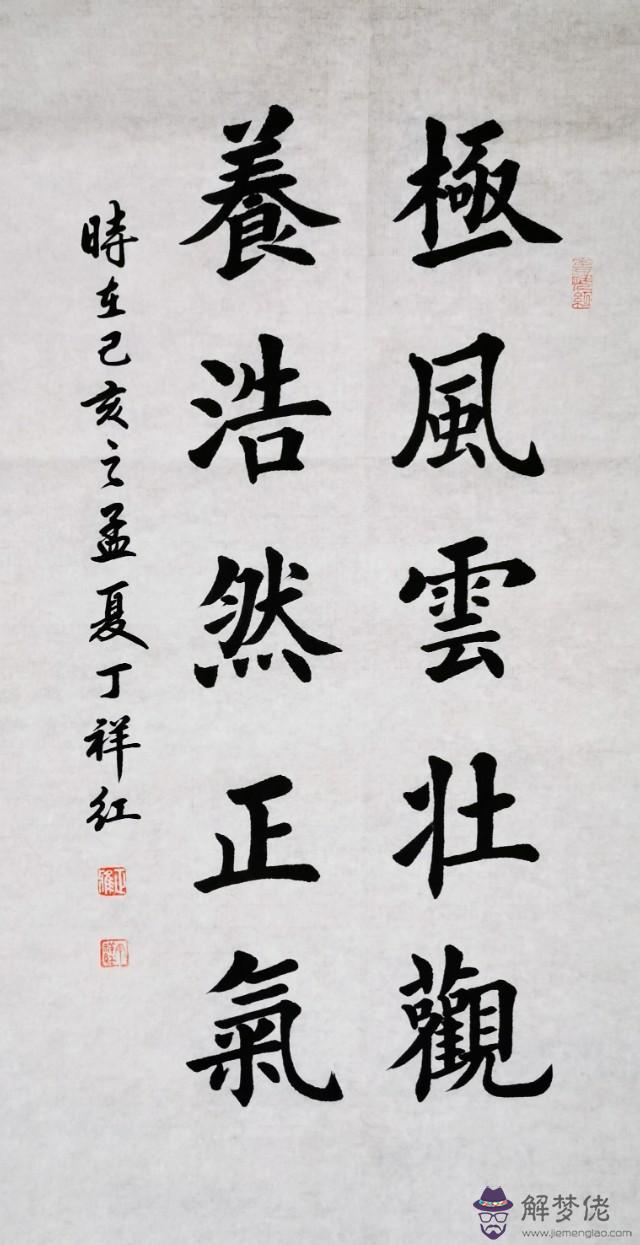 極風雲壯觀
養浩然正氣
時在己亥之孟夏丁祥红
解梦佬
www.jiemenglao.com